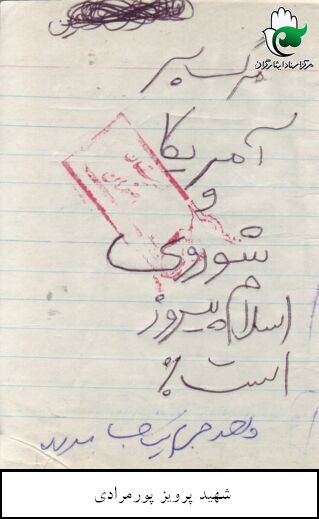 مرکز اسناد ایثارگران
مرگ بر
آمریکا
و
شوروی
اسلام پیروز
است
شهید پرویز پورمرادی